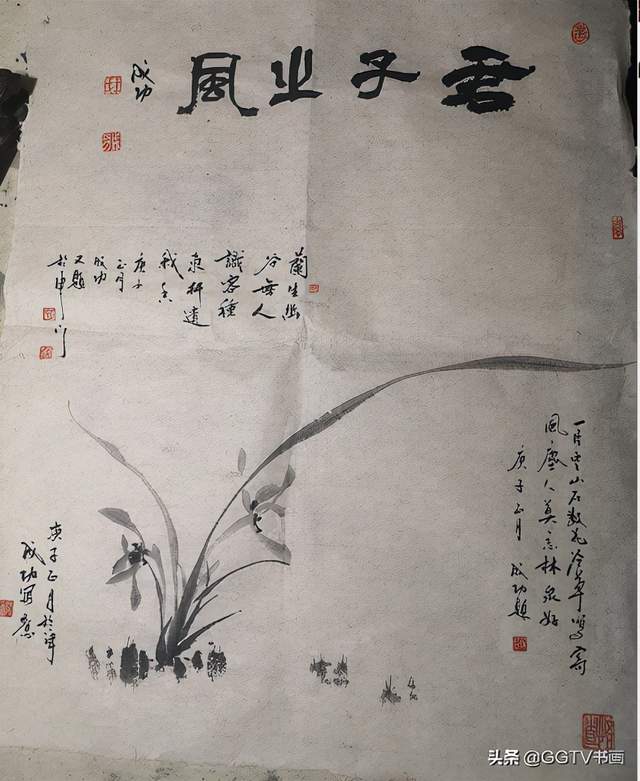 君子之風
成功
蘭生幽
谷無人
識客種
東軒遺
我香
庚子
正月
成功
又題
一片空山石数草寫寄
風塵人莫忘林泉好
庚子正月 成功題
庚子正月於
成功寫意
头条 @GGTV书画